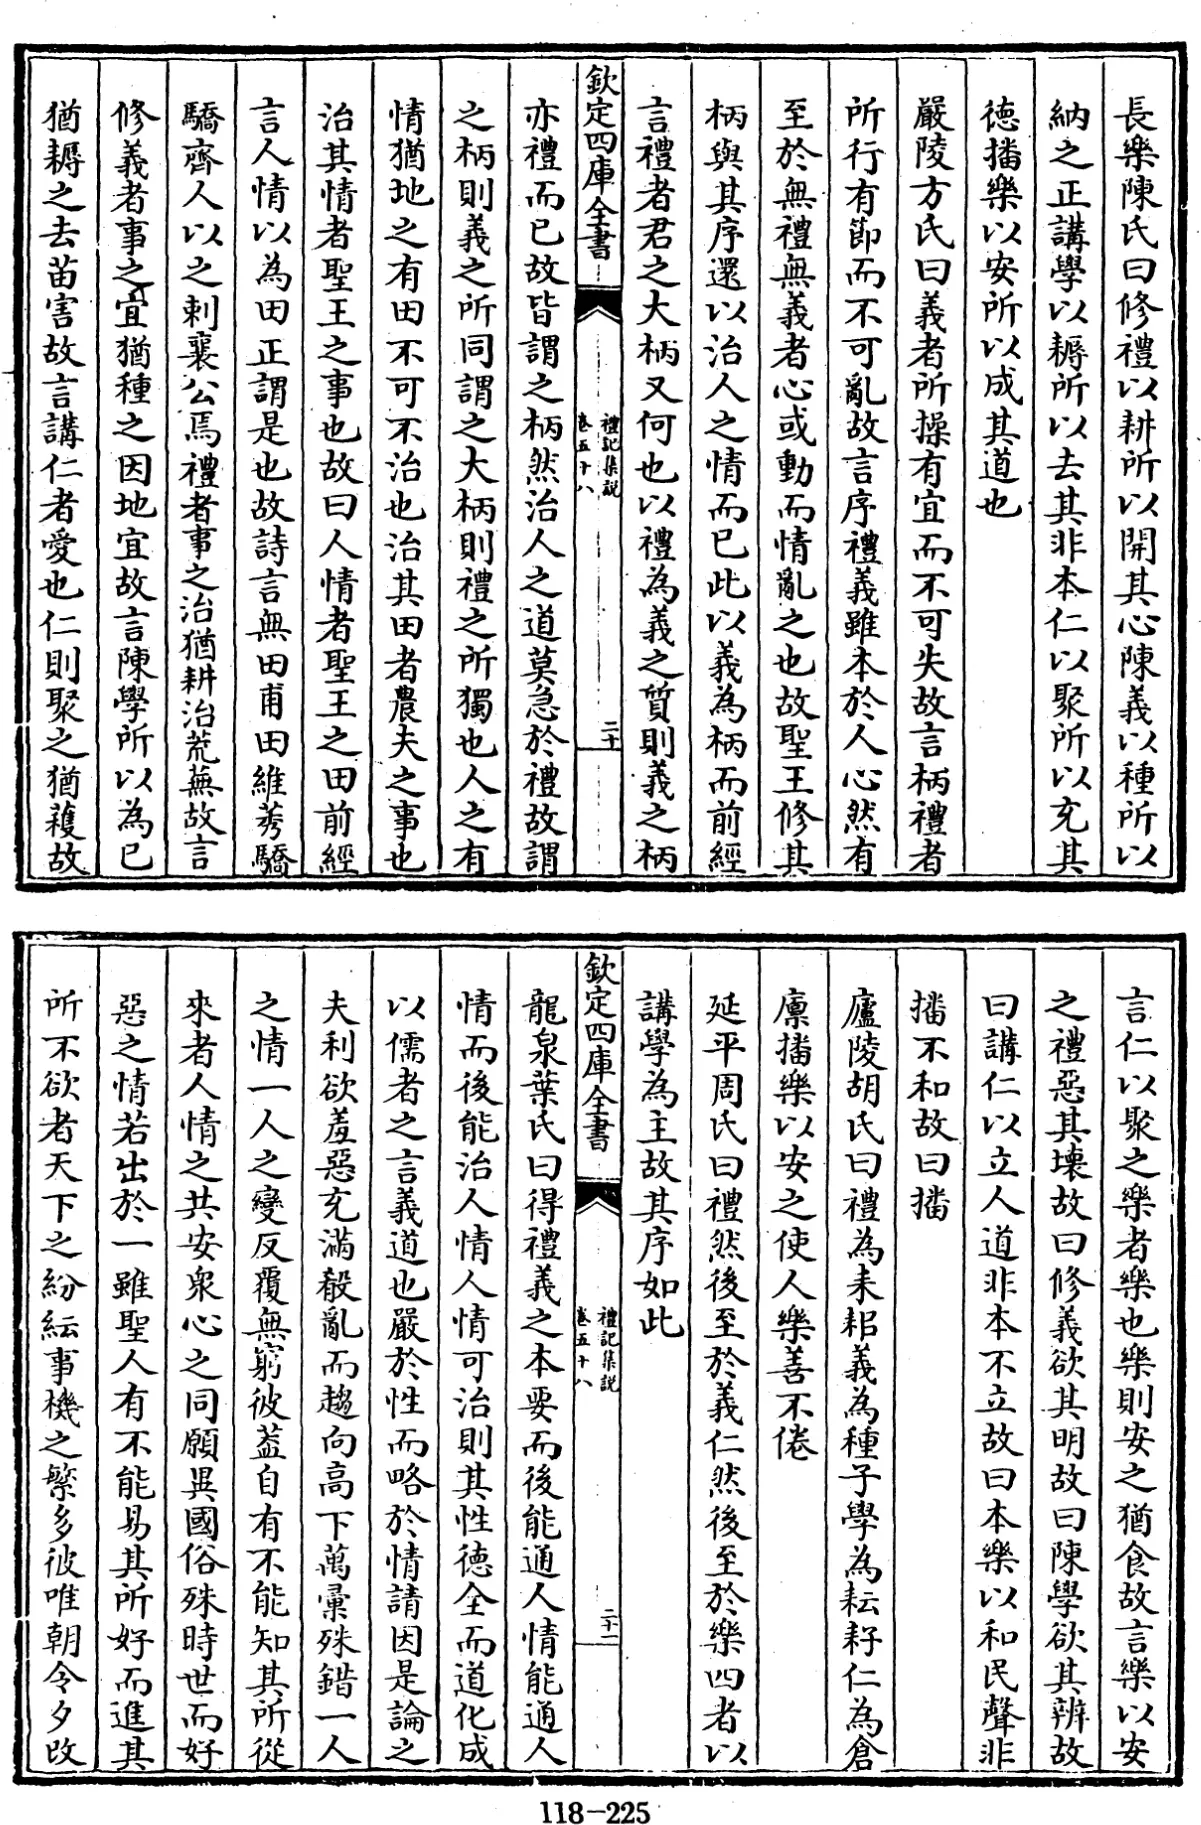 長樂陳氏曰修禮以耕所以開其心陳義以種所以
納之正講學以耨所以去其非本仁以聚所以充其
德播樂以安所以成其道也
嚴陵方氏曰義者所操有宜而不可失故言柄禮者
所行有節而不可亂故言序禮義雖本於人心然有
至於無禮無義者心或動而情亂之也故聖王修其
柄與其序還以治人之情而已此以義為柄而前經
言禮者君之大柄又何也以禮為義之質則義之柄
欽定四庫全書
禮記集說
卷五十八
二十
亦禮而已故皆謂之柄然治人之道莫急於禮故謂
之柄則義之所同謂之大柄則禮之所獨也人之有
情猶地之有田不可不治也治其田者農夫之事也
治其情者聖王之事也故曰人情者聖王之田前經
言人情以為田正謂是也故詩言無田甫田維莠驕
驕齊人以之刺襄公焉禮者事之治猶耕治荒蕪故言
修義者事之宜猶種之因地宜故言陳學所以為已
猶耨之去苗害故言講仁者愛也仁則聚之猶穫故
言仁以聚之樂者樂也樂則安之猶食故言樂以安
之禮惡其壞故曰修義欲其明故曰陳學欲其辨故
曰講仁以立人道非本不立故曰本樂以和民聲非
播不和故曰播
廬陵胡氏曰禮為耒耜義為種子學為耘耔仁為倉
廪播樂以安之使人樂善不倦
延平周氏曰禮然後至於義仁然後至於樂四者以
講學為主故其序如此
欽定四庫全書
禮記集說
卷五十八
二十一
龍泉葉氏曰得禮義之本要而後能通人情能通人
情而後能治人情人情可治則其性德全而道化成
以儒者之言義道也嚴於性而略於情請因是論之
夫利欲羞惡充滿殽亂而趨向高下萬彙殊錯一人
之情一人之變反覆無窮彼葢自有不能知其所從
來者人情之共安衆心之同願異國俗殊時世而好
惡之情若出於一雖聖人有不能易其所好而進其
所不欲者天下之紛紜事機之繁多彼唯朝令夕改
118-225